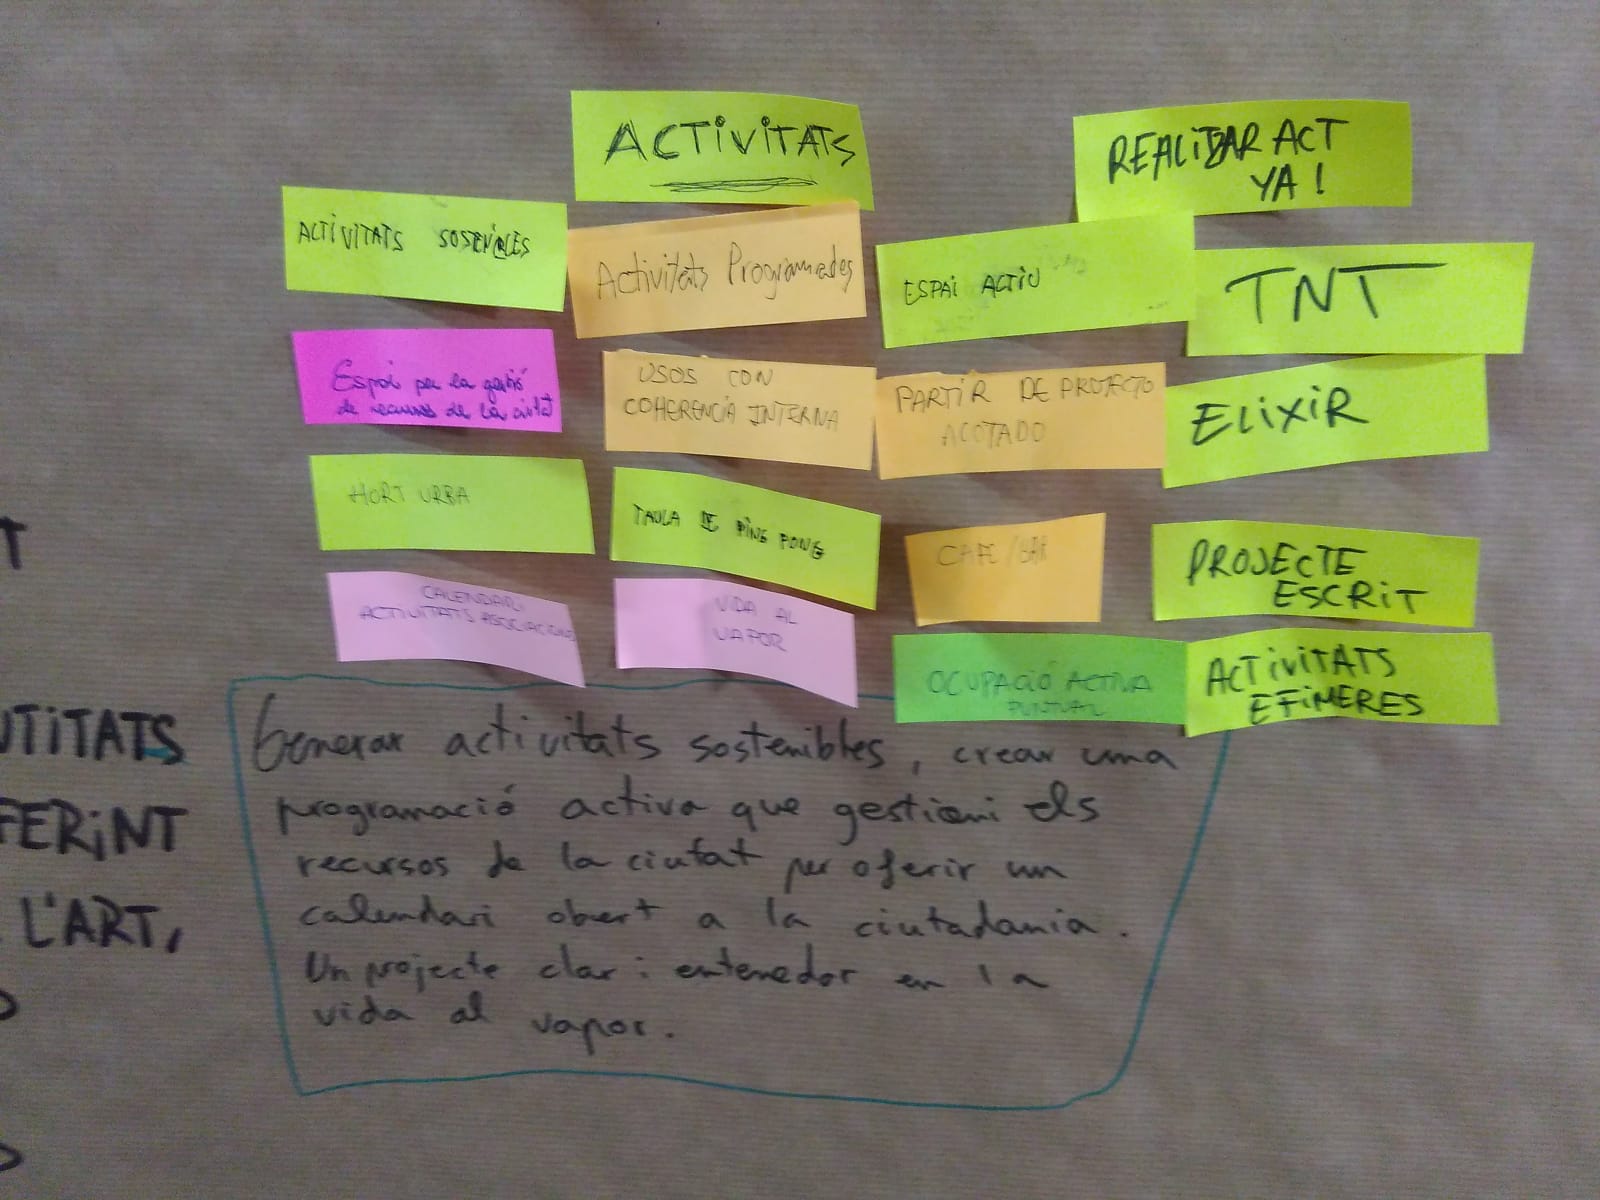 ACTIVITATS
REALITZAR ACT
YA!
ACTIVITATS SOSTENIBLES
Activitats Programades
ESPAI ACTIU
TNT
Espai per la gestió
de recursos de la ciutat
USOS CON
COHERENCIA INTERNA
PARTIR DE PROJECTO
ACOTADO
ELIXIR
HORT URBA
TAULA DE PING PONG
CAFE/BAR
PROJECTE
ESCRIT
CALENDARI
ACTIVITATS ASOCIACIONS
VIDA AL
VAPOR
OCUPACIÓ ACTIVA
PUNTUAL
ACTIVITATS
EFIMERES
Generar activitats sostenibles, crear una
programació activa que gestioni els
recursos de la ciutat per oferir un
calendari obert a la ciutadania.
Un projecte clar i entenedor en la
vida al vapor.
T
UTITATS
FERINT
L'ART,